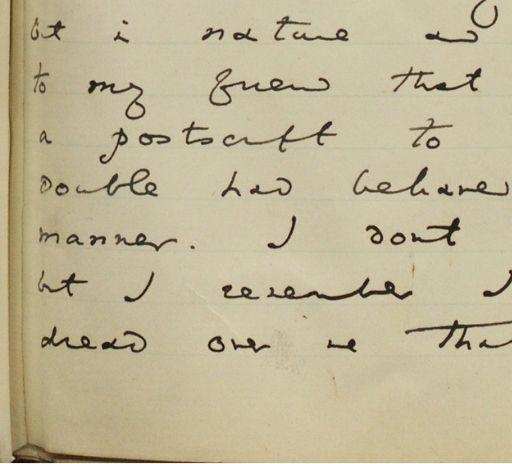 but i nature and
to my friend that
a postscript to
Double had behaved
manner. I dont
but I remember I
dread over me tha